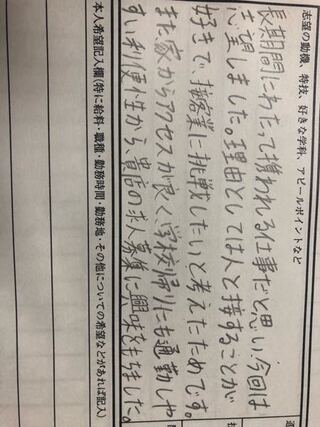 志望の動機、特技、好きな学科、アピールポイントなど
長期間にわたって携われる仕事だと思い、今回は
志望しました。理由としては人と接することが
好きで、接客業に挑戦したいと考えたためです。
また、家からアクセスが良く、学校帰りにも通勤しや
すい利便性から貴店の求人募集に興味をもちました。
本人希望記入欄(特に給料・職種・勤務時間・勤務地・その他についての希望などがあれば記入)